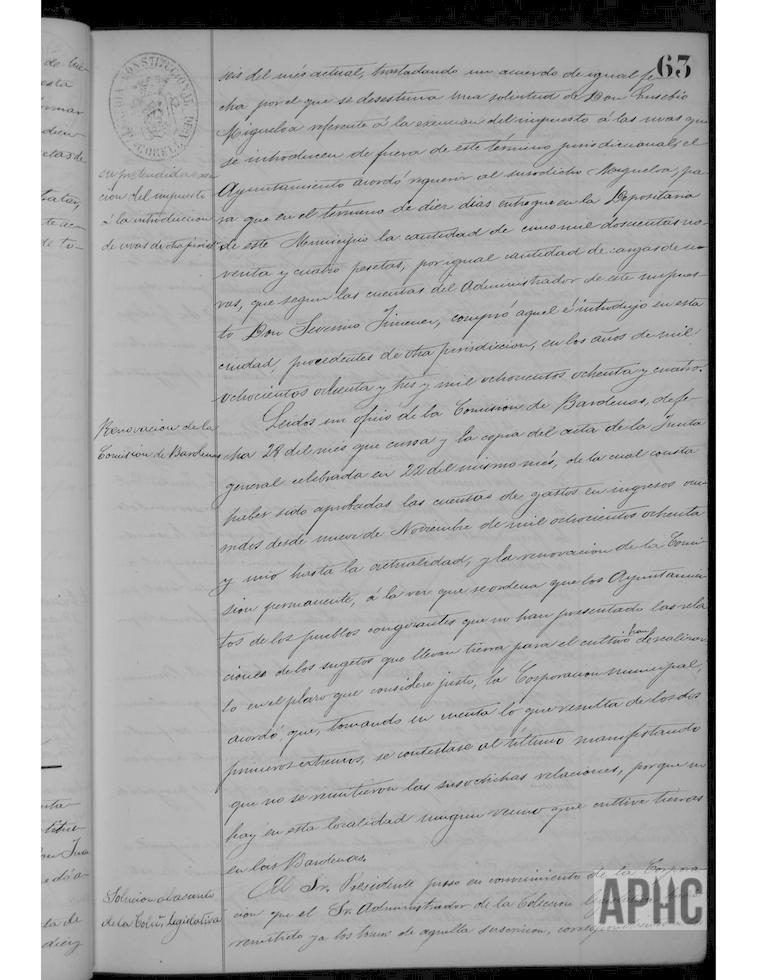 63
seis del més actual, trasladando un acuerdo de igual fe-
cha por el que se desestima una solicitud de Don Eusebio
Miguelóa referente á la exencion del impuesto á las uvas que
se introducen de fuera de este término jurisdiccional; el
Ayuntamiento acordó requerir al susodicho Miguelóa, pa-
ra que en el término de diez dias entregue en la Depositaria
de este Municipio la cantidad de cinco mil doscientas no-
venta y cuatro pesetas, por igual cantidad de cargas de u-
vas, que segun las cuentas del Administrador de este impues-
to Don Severino Jimenez, compró aquel é introdujo en esta
ciudad, procedentes de otra jurisdiccion, en los años de mil
ochocientos ochenta y tres y mil ochocientos ochenta y cuatro.
Leidos un oficio de la Comision de Bardenas, de fe-
cha 28 del més que cursa y la copia del acta de la Junta
general celebrada en 22 del mismo més, de la cual consta
haber sido aprobadas las cuentas de gastos en ingresos
desde nueve de Noviembre de mil ochocientos ochenta
y uno hasta la actualidad, y la renovacion de la Comi-
sion permanente, á la vez que se ordena que los Ayuntamien-
tos de los pueblos congozantes que no han presentado las rela-
ciones de los sugetos que llevan tierra para el cultivo han de realizar-
lo en el plazo que considere justo, la Corporacion municipal,
acordó: que, tomando en cuenta lo que resulta de los dos
primeros extremos, se contestase al último manifestando
que no se remitieron las susodichas relaciones, porque no
hay en esta localidad ningun vecino que cultive tierras
en las Bardenas.
El Sr. Presidente puso en conocimiento de la Corpora-
cion que el Sr. Administrador de la Coleccion legislativa
remitido ya los tomos de aquella suscricion,
su pretendida exen-
cion del impuesto
á la introduccion
de uvas de otra jurisd
Renovacion de la
Comision de Bardenas
Solucion al asunto
de la Colec. Legislativa
APHC